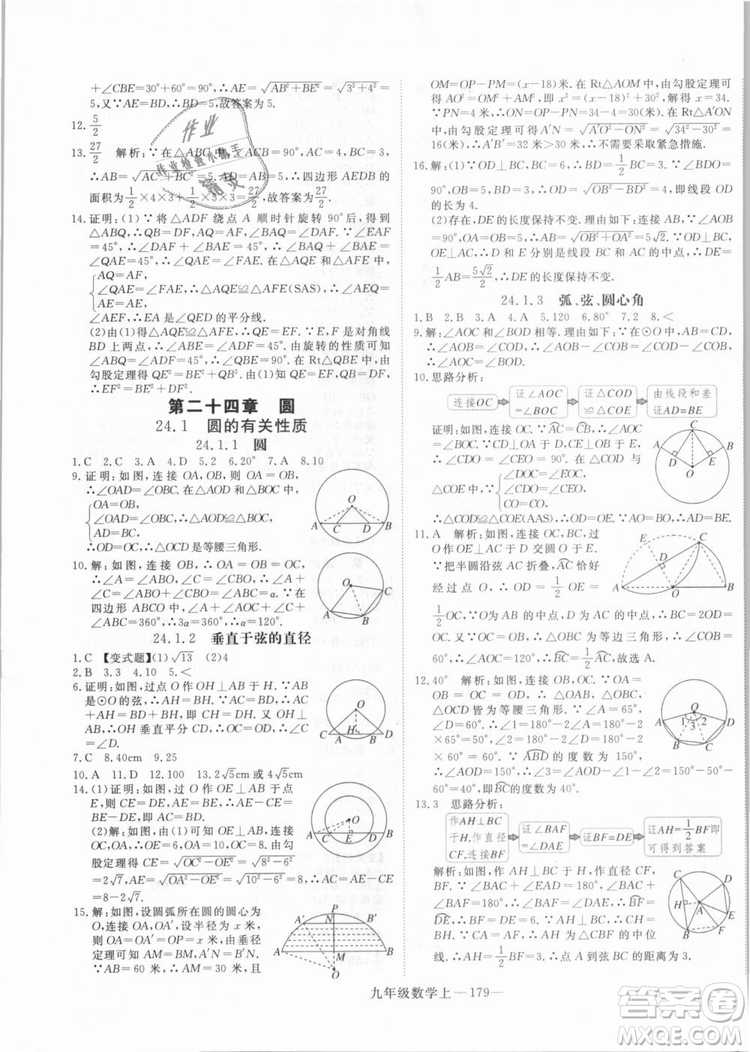 +∠CBE=30°+60°=90°,∴AE=√(AB²+BE²)=√(3²+4²)=
5,又∵AE=BD,∴BD=5.故答案为5.
12. 5/2
13. 27/2 解析:在△ABC中,
∴AB=√(AC²+BC²)= ∴四边形AEDB的
面积为1/2×4×3+ =27/2,故答案为27/2.
14.证明:(1)∵将△ADF绕点A顺时针旋转90°后,得到
△ABQ,∴QB=DF,AQ=AF,∠BAQ=∠DAF,∵∠EAF
=45°,∴∠DAF+∠BAE=45°,∴∠BAQ+∠BAE=
∠QAE=45°,∴∠QAE=∠FAE.在△AQE和△AFE中
AQ=AF,
∠QAE=∠FAE,∴△AQE≌△AFE(SAS),∴∠AEQ=
AE=AE,
∠AEF,∴EA是∠QED的平分线.
(2)由(1)得△AQE≌△AFE,∴QE=EF.∵BF是对角线
BD上的部分,∴∠ADF=∠ABD=45°,由旋转的性质可得
∠ABQ=∠ADF=45°,∴∠QBE=90°.在Rt△QBE中,
QB²+BE²=QE²,∴EF²=BE²+DF².
第二十四章 圆
24.1 圆的有关性质
24.1.1 圆
1.C 2.C 3.A 4.D 5.2 6.20° 7.A 8.10
9.证明:如图,连接OA,OB.∵OA=OB,
∴∠OAD=∠OBC.在△OAD和△OBC中,
OA=OB,
∠OAD=∠OBC,∴△OAD≌△OBC,
AD=BC,
∴OD=OC,∴△OCD是等腰三角形.
10.解:如图,连接OB.∵OA=OB=OC,
∴∠A=∠ABO,∠C=∠OBC.∴∠A+
∠C=∠ABO+∠OBC=∠ABC=α.∵在
四边形ABCO中,∠A+∠C+∠ABC+
∠AOC=360°,∴3α=360°,∴α=120°.
24.1.2 垂直于弦的直径
1.C 【变式题】(1)√13 (2)4
2.B 3.3 4.10 5.<
6.证明:如图,过点O作OH⊥AB于H.∵AB
是⊙O的弦,∴AH=BH.又∵AC=BD,
∴AH-AC=BH-BD,即CH=DH.
∴OH垂直平分CD,∴OC=OD.
7.C 8.40cm 9.25
10.A 11.D 12.100 13.2√5cm或4√5cm
14.(1)证明:如图,过点O作OE⊥AB于点
E,则CE=DE,AE=BE,∴AE-CE=
BE-DE,即AC=BD.
(2)解:由(1)可知OE⊥AB且OE⊥CD,
连接OC,OA,则OA=10,OC=8,OE=6.由
勾股定理可得CE=√(OC²-OE²)=√(8²-6²)
=2√7,AE=√(OA²-OE²)=√(10²-6²)=8,∴AC=AE-CE
=8-2√7.
15.解:如图,设圆弧所在圆的圆心为O,
连接OA,OA′,设半径为x米,则
OA=OA′=OP=x米.由垂径
定理可知AM=BM,A′N=B′N.
∵AB=60米,∴AM=30米,且
OM=OP-PM=(x-18)米.在Rt△AOM中,由勾股定理可
得AO²=OM²+AM²,即x²=(x-18)²+30²,解得x=34.
∵PN=4米,∴ON=OP-PN=34-4=30(米).在Rt△A′ON
中,由勾股定理可得A′N=√(OA′²-ON²)=√(34²-30²)=
16(米),∴A′B′=32米>30米,∴不需要采取紧急措施.
16.解:(1)∵OD⊥BC,∴BD=1/2BC=1/2×6=3.∵∠BDO
=90°,OB=5,BD=3,∴OD=√(OB²-BD²)=4,即线段OD
的长度为4.
(2)存在,DE的长度保持不变.连接AB,∵∠AOB
=90°,OA=OB=5,∴AB=√(OB²+OA²)=5√2.∵OD⊥BC,
OE⊥AC,∴D和E分别是线段BC和AC的中点,∴DE=
1/2AB=5√2/2,∴DE的长度保持不变.
24.1.3 弧、弦、圆心角
1.D 2.A 3.C 4.A 5.120 6.80° 7.> 8.C
9.解:∠AOC和∠BOD相等.理由如下:∵在⊙O中,AB=
CD,∴∠AOB=∠COD,∴∠AOB-∠COB=∠COD-
∠COB,∴∠AOC=∠BOD.
10.思路分析:
连接OC
证∠AOC
=∠BOC
证△COD
≌△COE
由线段和差
证AD=BE
证明:如图,连接OC.∵AC=BC,
∴∠AOC=∠BOC.∵CD⊥OA于D,
CE⊥OB于E,∴∠CDO=∠CEO=90°.
∠DOC=∠EOC,
在△COD与△COE中,
∠CDO=∠CEO,
CO=CO,
∴△COD≌△COE(AAS),∴OD=OE.
∵AO=BO,∴AD=BE.
11.A 解析:如图,连接OC,BC,过O作
OE⊥AC于D交圆O于E,
∵把半圆沿弦AC折叠,AC恰好
经过点O,∴OD=1/2OE=
1/2OC.∵O为AB的中点,D为AC的中点,∴BC=2OD=
OC.又∵OC=OB,∴△OBC为等边三角形,∴∠COB=
60°,∴∠AOC=120°,∴BC=1/2AC,故选A.
12.40° 解析:如图,连接OA,OC,OD.
∵OA=OB=OC=OD,∴△OAB,△OBC,
△OCD皆为等腰三角形.∵∠A=65°,
∠D=60°,∴∠1=180°-2∠A=180°-2
×65°=50°,∠2=180°-2∠D=180°-2×
60°=60°.∵ABD的度数为150°,∴∠AOD=150°,∴∠3=
∠AOD-∠1-∠2=150°-50°-60°=40°.
13.3 思路分析:
作AH⊥BC
于H,作直径
CF,连接BF
证∠BAF
=∠DAE
证
BF=DE
证AH=1/2BF
可得到答案
解析:如图,作AH⊥BC于H,作直径CF,
连接BF.∵∠BAC+∠EAD=180°,∠BAC
+∠BAF=180°,∴∠DAE=∠BAF,∴DE
=BF,∴DE=BF=6.∵AH⊥BC,∴CH=
BH.∵CA=AF,∴AH为△CBF的中位
线,∴AH=1/2BF=3.∴点A到弦BC的距离为3.
九年级数学上—179—